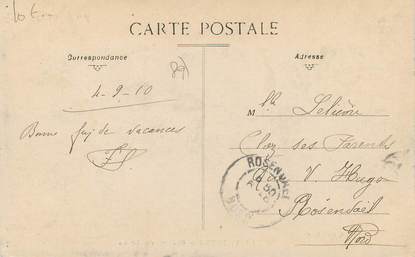 CARTE POSTALE
Correspondance
Adresse
4-9-10
Bonne fin de vacances
M
Chez ses Parents
V. Hugo
Rosendaël
Nord
ROSENDAEL
NORD